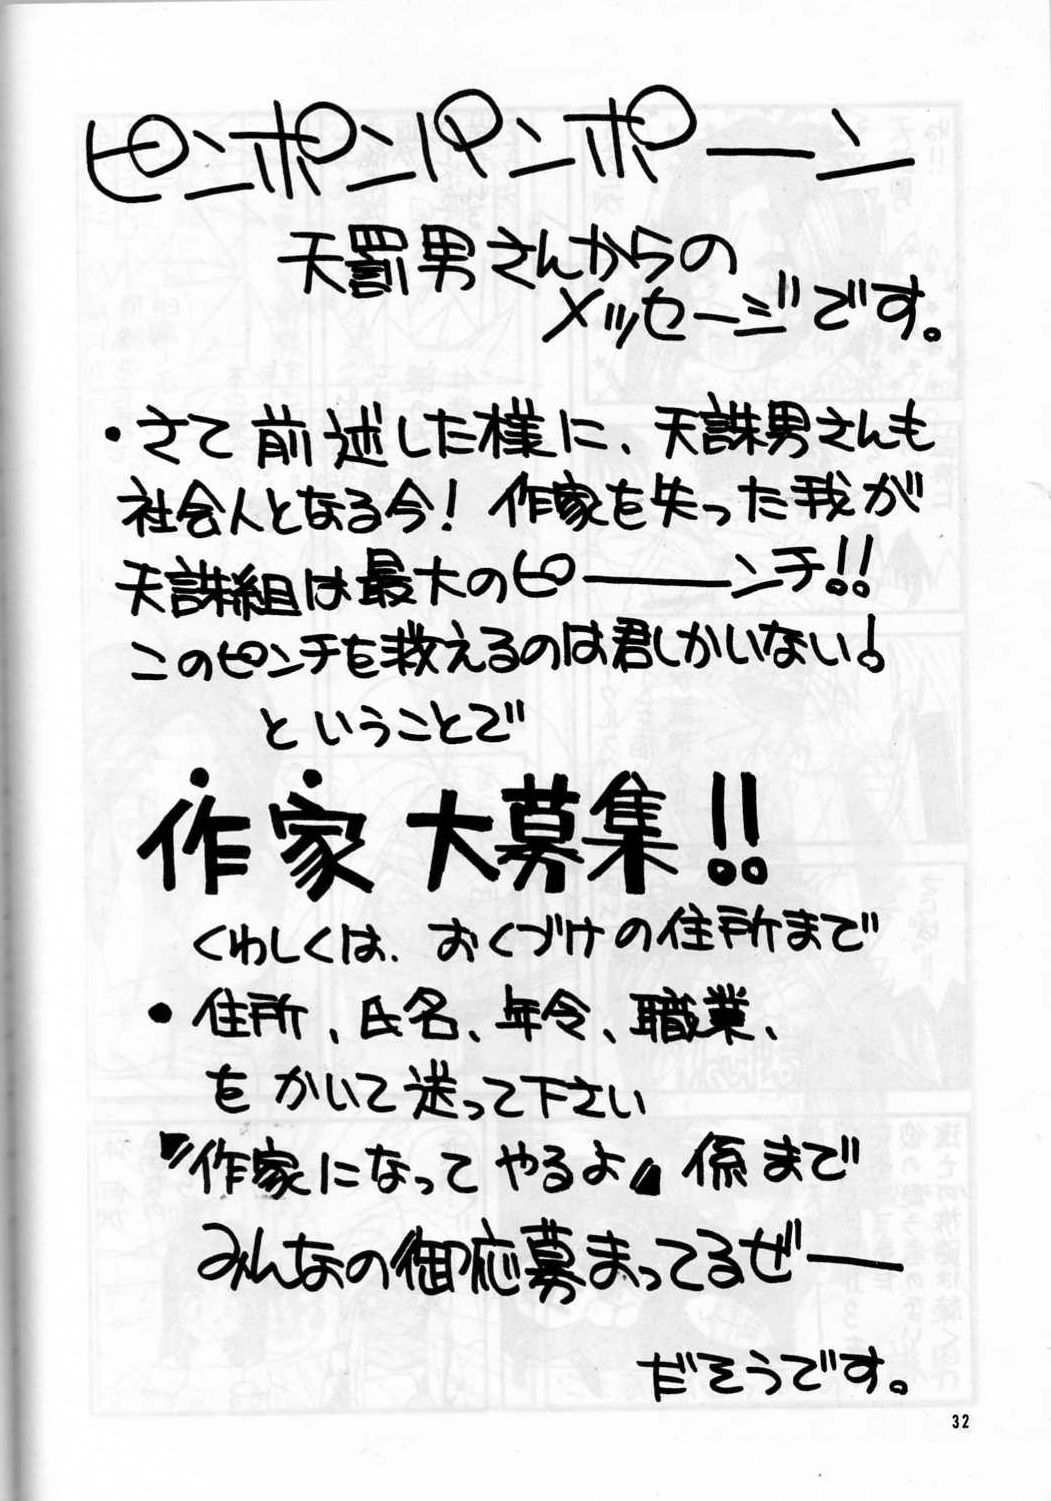 ピンポンパンポーン
天罰男さんからの
メッセージです。
・さて前述した様に、天誅男さんも
社会人となる今！作家を失った我が
天誅組は最大のピ――ンチ!!
このピンチを救えるのは君しかいない！
ということで
作家大募集!!
くわしくは、おくづけの住所まで
・住所、氏名、年令、職業、
をかいて送って下さい
〝作家になってやるよ〟係まで
みんなの御応募まってるぜー
だそうです。
32